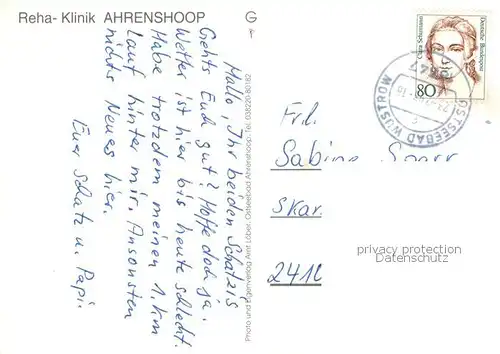 Reha- Klinik AHRENSHOOP
G
Hallo, Ihr beiden Schatzis
Gehts Euch gut? Hoffe doch ja.
Wetter ist hier bis heute schlecht.
Habe trotzdem meinen 1. km
Lauf hinter mir. Ansonsten
nichts Neues hier.
Euer Schatz u. Papi.
Photo und Eigenverlag Amt Löber, Ostseebad Ahrenshoop, Tel. 038220-80182
Deutsche Bundespost
Clara Schumann
80
OSTSEEBAD WUSTROW
Frl.
Sabine
Skar.
2410
privacy protection
Datenschutz